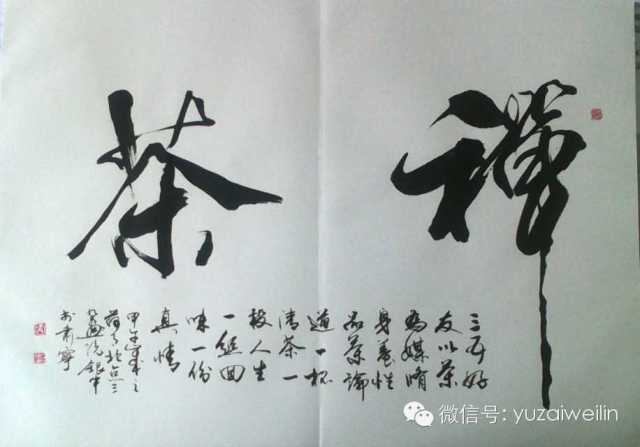 禅
茶
三五好
友以茶
为媒修
身养性
品茶论
道一杯
清茶一
段人生
一丝回
味一份
真情
甲午
微信号: yuzaiweilin